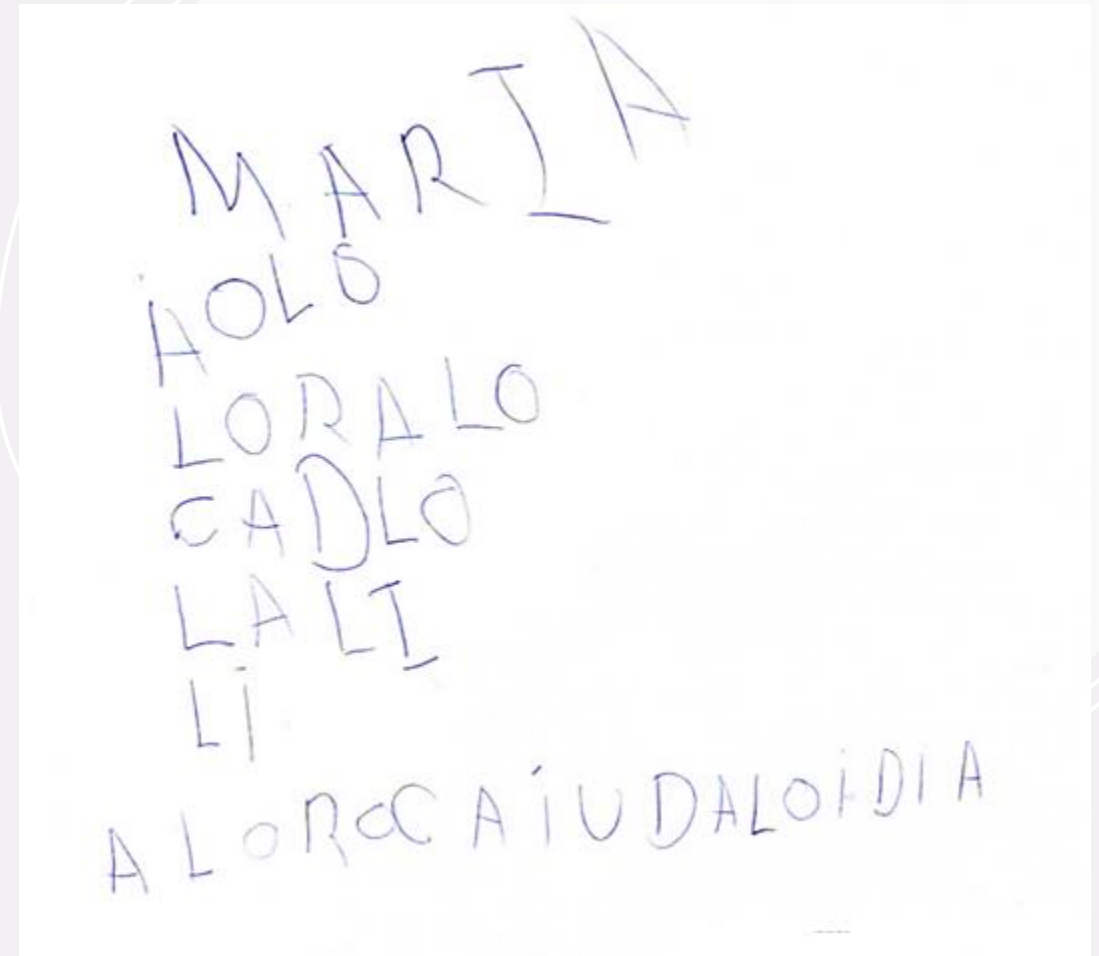 MARIA
AOLO
LORALO
CADLO
LALI
Li
ALOROCAiUDALOiDIA